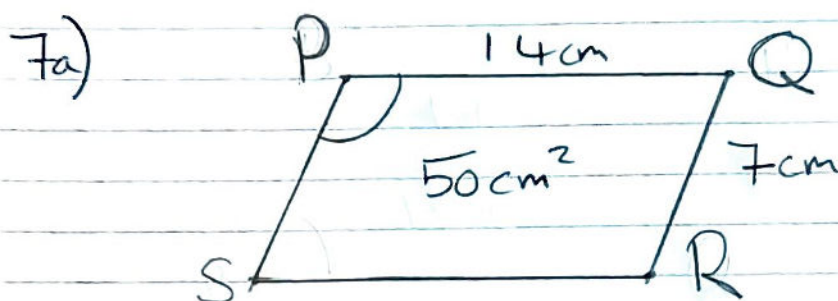 7a)
P 14cm Q
50cm² 7cm
S R